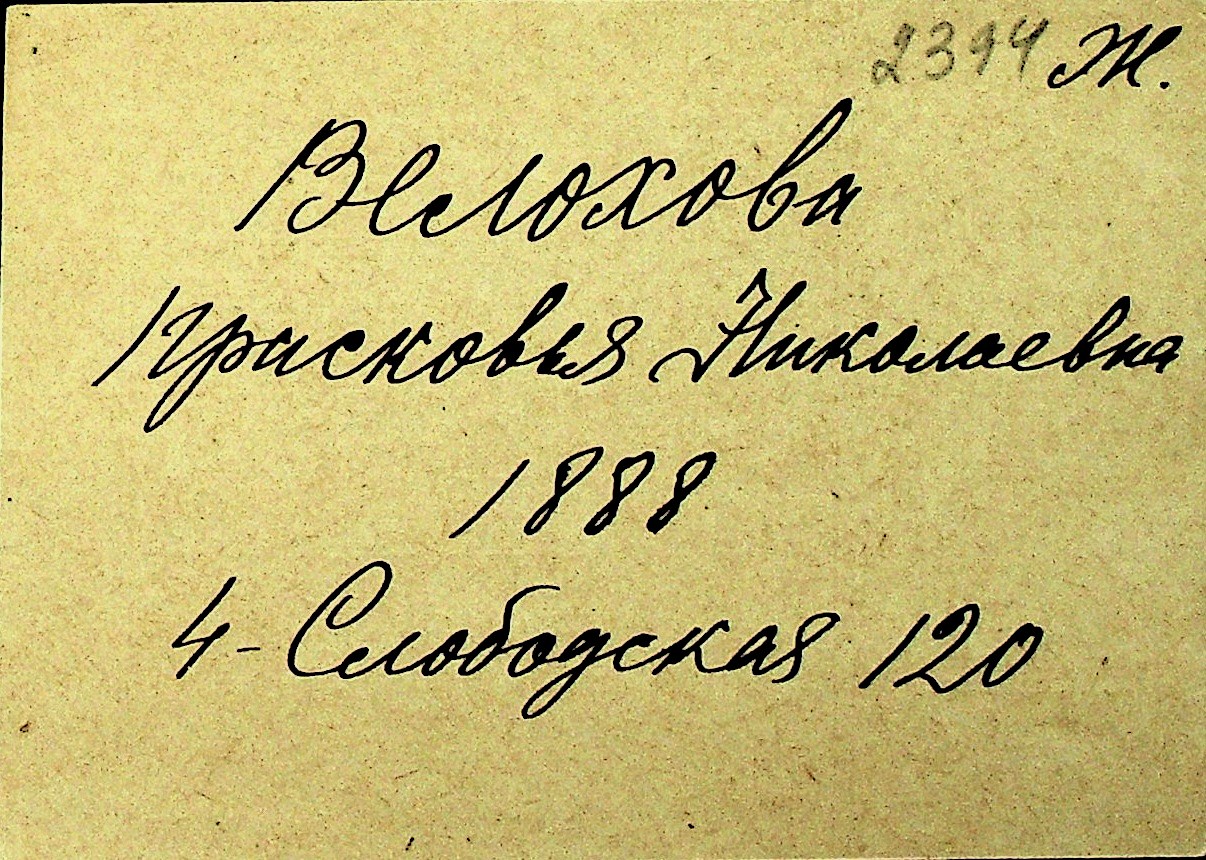 2394 Ж.
Велохова
Прасковья Николаевна
1888
4-Слободская 120